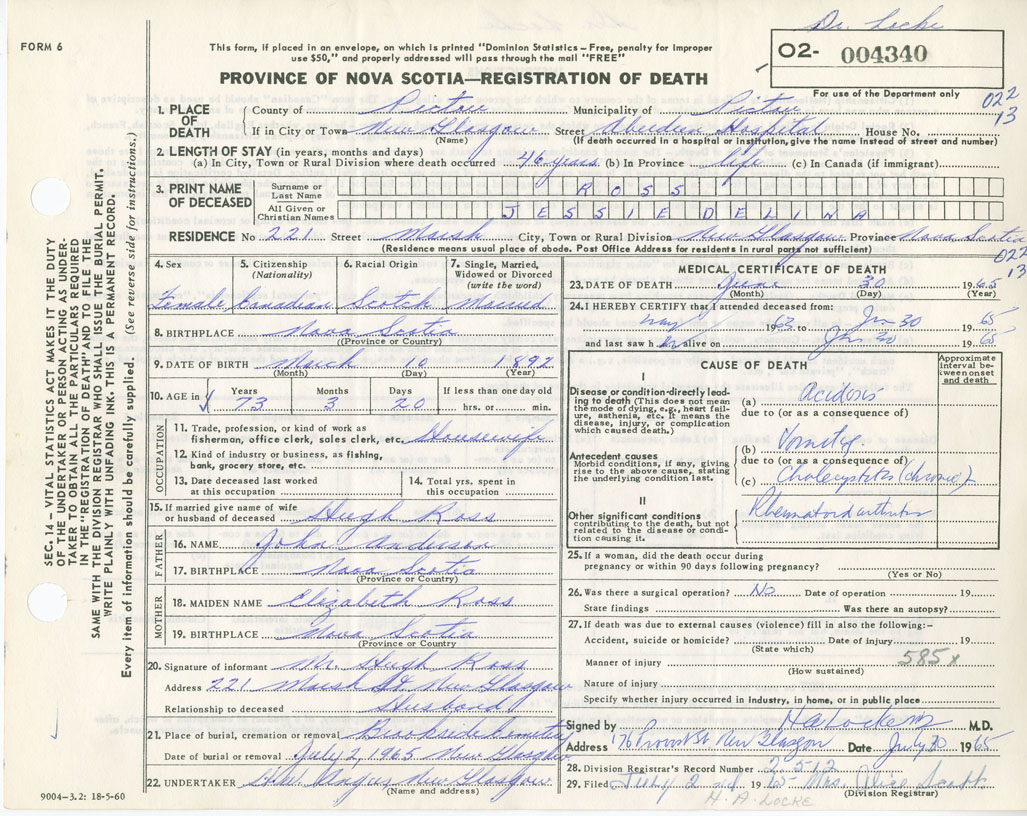 Dr. Locke
FORM 6
This form, if placed in an envelope, on which is printed "Dominion Statistics—Free, penalty for improper
use $50," and properly addressed will pass through the mail "FREE"
O2- 004340
PROVINCE OF NOVA SCOTIA—REGISTRATION OF DEATH
For use of the Department only
022
13
1. PLACE OF DEATH
County of Pictou Municipality of Pictou
If in City or Town New Glasgow Street Aberdeen Hospital House No.
(Name) (If death occurred in a hospital or institution, give the name instead of street and number)
2. LENGTH OF STAY (in years, months and days)
(a) In City, Town or Rural Division where death occurred 46 years (b) In Province life (c) In Canada (if immigrant)
3. PRINT NAME OF DECEASED
Surname or Last Name ROSS
All Given or Christian Names JESSIE DELINA
RESIDENCE No 221 Street Marsh City, Town or Rural Division New Glasgow Province Nova Scotia
(Residence means usual place of abode. Post Office Address for residents in rural parts not sufficient)
022
13
4. Sex 5. Citizenship (Nationality) 6. Racial Origin 7. Single, Married, Widowed or Divorced (write the word)
Female Canadian Scotch Married
8. BIRTHPLACE Nova Scotia
(Province or Country)
9. DATE OF BIRTH March 10 1892
(Month) (Day) (Year)
10. AGE in Years Months Days If less than one day old
73 3 20 hrs. or min.
OCCUPATION
11. Trade, profession, or kind of work as
fisherman, office clerk, sales clerk, etc. Housewife
12. Kind of industry or business, as fishing,
bank, grocery store, etc.
13. Date deceased last worked
at this occupation
14. Total yrs. spent in
this occupation
15. If married give name of wife
or husband of deceased Hugh Ross
FATHER
16. NAME John Anderson
17. BIRTHPLACE Nova Scotia
(Province or Country)
MOTHER
18. MAIDEN NAME Elizabeth Ross
19. BIRTHPLACE Nova Scotia
(Province or Country)
20. Signature of informant Mr. Hugh Ross
Address 221 Marsh St New Glasgow
Relationship to deceased Husband
21. Place of burial, cremation or removal Brookside
Date of burial or removal July 2, 1965 New Glasgow
22. UNDERTAKER H.W. Angus New Glasgow
(Name and address)
9004—3.2: 18-5-60
MEDICAL CERTIFICATE OF DEATH
23. DATE OF DEATH June 30 1965
(Month) (Day) (Year)
24. I HEREBY CERTIFY that I attended deceased from:
May 1963 to Jun 30 1965
and last saw h er alive on Jun 30 1965
CAUSE OF DEATH
Approximate interval between onset and death
I
Disease or condition directly leading to death (This does not mean the mode of dying, e.g., heart failure, asthenia, etc. It means the disease, injury, or complication which caused death.)
(a) Acidosis
due to (or as a consequence of)
Antecedent causes
Morbid conditions, if any, giving rise to the above cause, stating the underlying condition last.
(b) Vomiting
due to (or as a consequence of)
(c) Cholecystitis (chronic)
II
Other significant conditions
contributing to the death, but not related to the disease or condition causing it.
Rheumatoid arthritis
25. If a woman, did the death occur during
pregnancy or within 90 days following pregnancy?
(Yes or No)
26. Was there a surgical operation? No Date of operation 19
State findings Was there an autopsy?
27. If death was due to external causes (violence) fill in also the following:–
Accident, suicide or homicide? Date of injury 19
(State which)
Manner of injury 585x
(How sustained)
Nature of injury
Specify whether injury occurred in industry, in home, or in public place
Signed by H A Locke M.D.
Address 176 Provost St New Glasgow Date July 30 1965
28. Division Registrar's Record Number
29. Filed July 2nd 1965 Mrs. Alice
(Division Registrar)
H. A. LOCKE
SEC. 14 — VITAL STATISTICS ACT MAKES IT THE DUTY
OF THE UNDERTAKER OR PERSON ACTING AS UNDER-
TAKER TO OBTAIN ALL THE PARTICULARS REQUIRED
IN THE "REGISTRATION OF DEATH" AND TO FILE THE
SAME WITH THE DIVISION REGISTRAR WHO SHALL ISSUE THE BURIAL PERMIT.
WRITE PLAINLY WITH UNFADING INK. THIS IS A PERMANENT RECORD.
Every item of information should be carefully supplied. (See reverse side for instructions.)